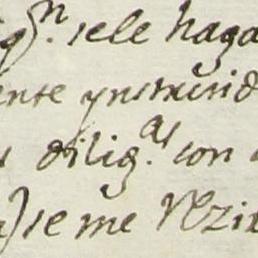 g.n sele haga
ente ynstruid
dilig.as con
se me Rezi